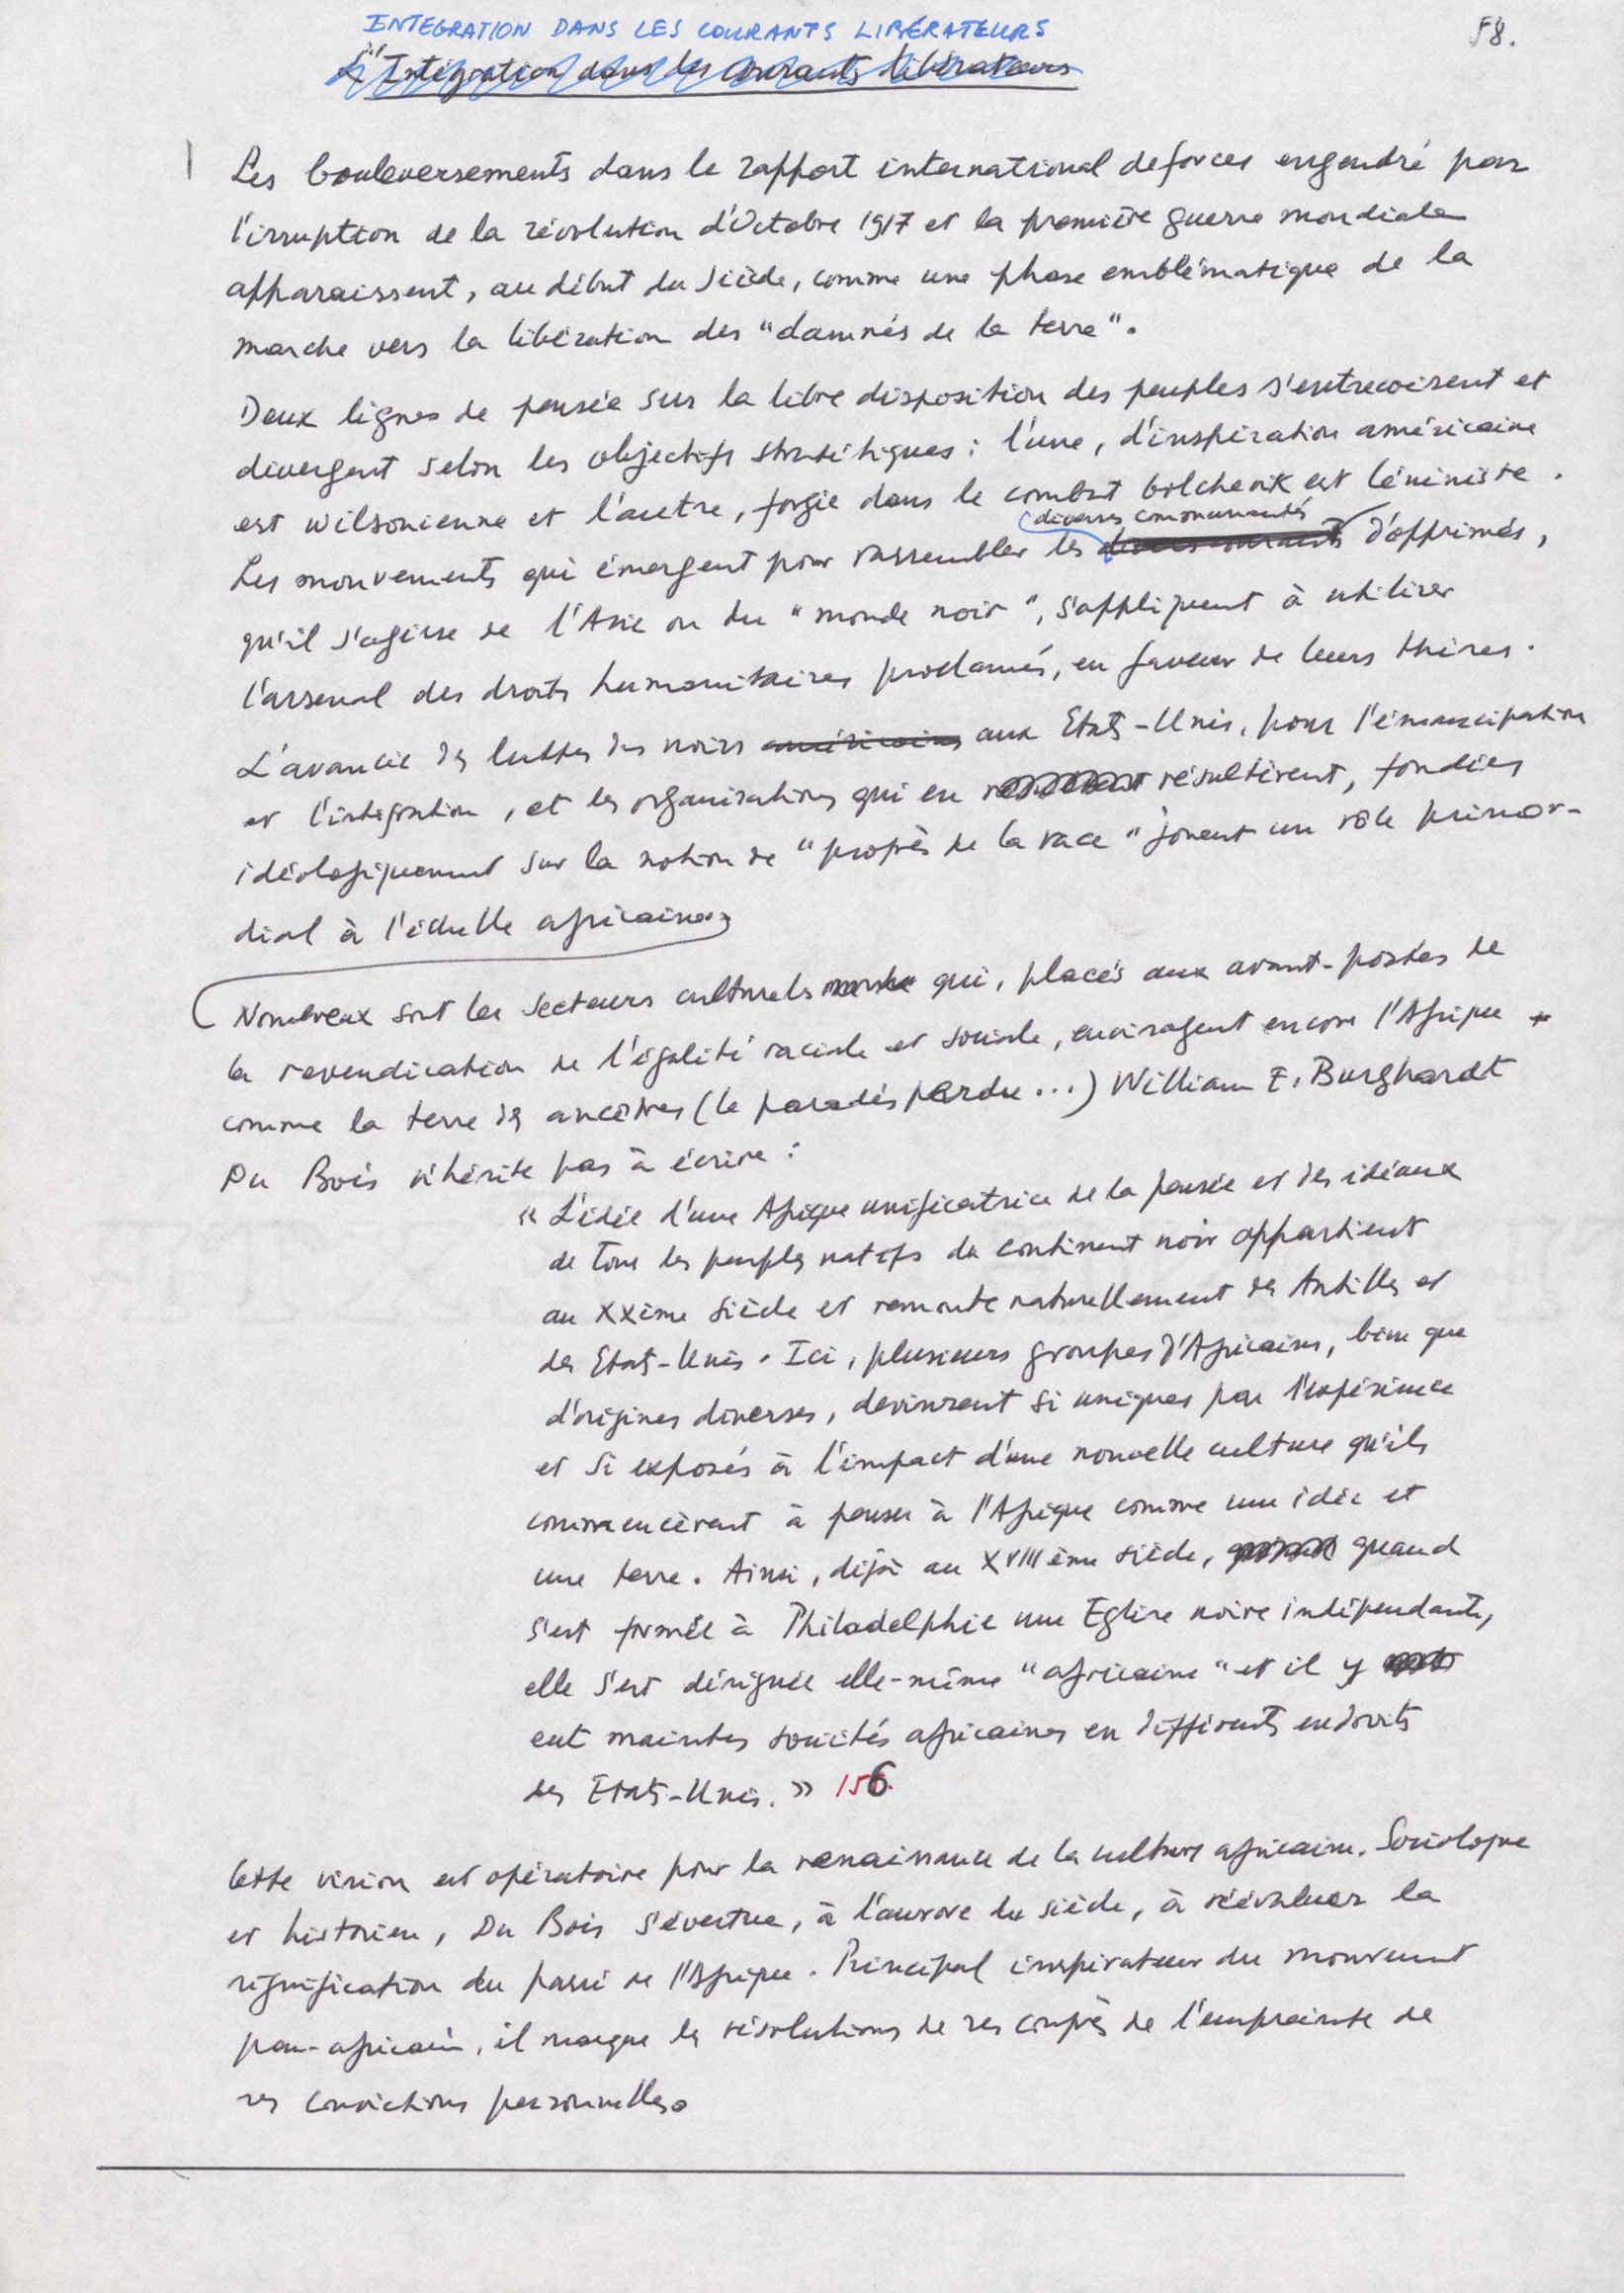 58.
INTEGRATION DANS LES COURANTS LIBÉRATEURS
L'Intégration dans les courants libérateurs
Les bouleversements dans le rapport international de forces engendré par
l'irruption de la révolution d'Octobre 1917 et la première guerre mondiale
apparaissent, au début du siècle, comme une phase emblématique de la
marche vers la libération des "damnés de la terre".
Deux lignes de pensée sur la libre disposition des peuples s'entrecroisent et
divergent selon les objectifs stratégiques : l'une, d'inspiration américaine
est wilsonienne et l'autre, forgée dans le combat bolchevik est léniniste.
diverses communautés
Les mouvements qui émergent pour rassembler les divers courants d'opprimés,
qu'il s'agisse de l'Asie ou du "monde noir", s'appliquent à utiliser
l'arsenal des droits humanitaires proclamés, en faveur de leurs thèses.
L'avancée des luttes des noirs américains aux Etats-Unis, pour l'émancipation
et l'intégration, et les organisations qui en résultèrent, fondées
idéologiquement sur la notion de "progrès de la race" jouent un rôle primor-
dial à l'échelle africaine.
Nombreux sont les secteurs culturels qui, placés aux avant-postes de
la revendication de l'égalité raciale et sociale, envisagent encore l'Afrique
comme la terre des ancêtres (le paradis perdu...) William E. Burghardt
Du Bois n'hésite pas à écrire :
« L'idée d'une Afrique unificatrice de la pensée et des idéaux
de tous les peuples natifs du continent noir appartient
au XXème siècle et remonte naturellement des Antilles et
des Etats-Unis. Ici, plusieurs groupes d'Africains, bien que
d'origines diverses, devinrent si uniques par l'expérience
et si exposés à l'impact d'une nouvelle culture qu'ils
commencèrent à penser à l'Afrique comme une idée et
une terre. Ainsi, déjà au XVIIIème siècle, quand
s'est formée à Philadelphie une Eglise noire indépendante,
elle s'est désignée elle-même "africaine" et il y
eut maintes sociétés africaines en différents endroits
des Etats-Unis. » 156
Cette vision est opératoire pour la renaissance de la culture africaine. Sociologue
et historien, Du Bois s'évertue, à l'aurore du siècle, à réévaluer la
signification du passé de l'Afrique. Principal inspirateur du mouvement
pan-africain, il marque les résolutions de ses congrès de l'empreinte de
ses convictions personnelles.